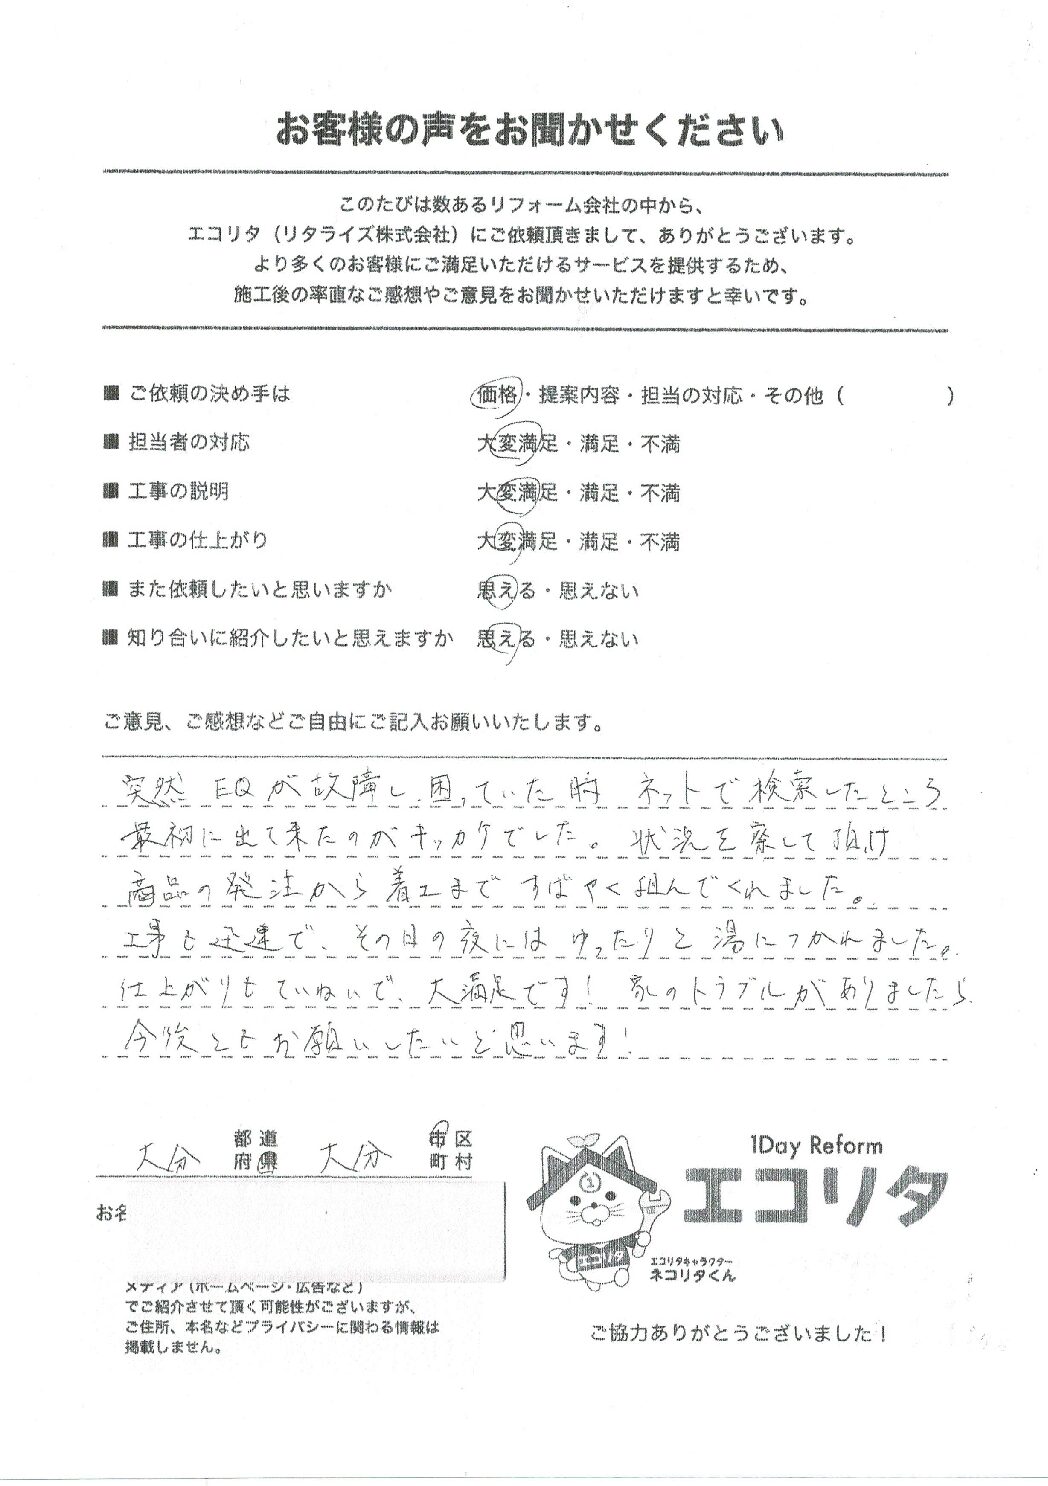 お客様の声をお聞かせください
このたびは数あるリフォーム会社の中から、
エコリタ（リタライズ株式会社）にご依頼頂きまして、ありがとうございます。
より多くのお客様にご満足いただけるサービスを提供するため、
施工後の率直なご感想やご意見をお聞かせいただけますと幸いです。
■ ご依頼の決め手は 価格・提案内容・担当の対応・その他（ ）
■ 担当者の対応 大変満足・満足・不満
■ 工事の説明 大変満足・満足・不満
■ 工事の仕上がり 大変満足・満足・不満
■ また依頼したいと思いますか 思える・思えない
■ 知り合いに紹介したいと思えますか 思える・思えない
ご意見、ご感想などご自由にご記入お願いいたします。
突然 EQが故障し困っていた時 ネットで検索したところ
最初に出て来たのがキッカケでした。状況を察して頂け
商品の発注から着工まですばやく組んでくれました。
工事も迅速で、その日の夜にはゆったりと湯につかれました。
仕上がりもていねいで、大満足です! 家のトラブルがありましたら
今後ともお願いしたいと思います!
大分 都道府県 大分 市区町村
お名
メディア（ホームページ・広告など）
でご紹介させて頂く可能性がございますが、
ご住所、本名などプライバシーに関わる情報は
掲載しません。
1Day Reform
エコリタ
①
エコリタ
エコリタキャラクター
ネコリタくん
ご協力ありがとうございました！